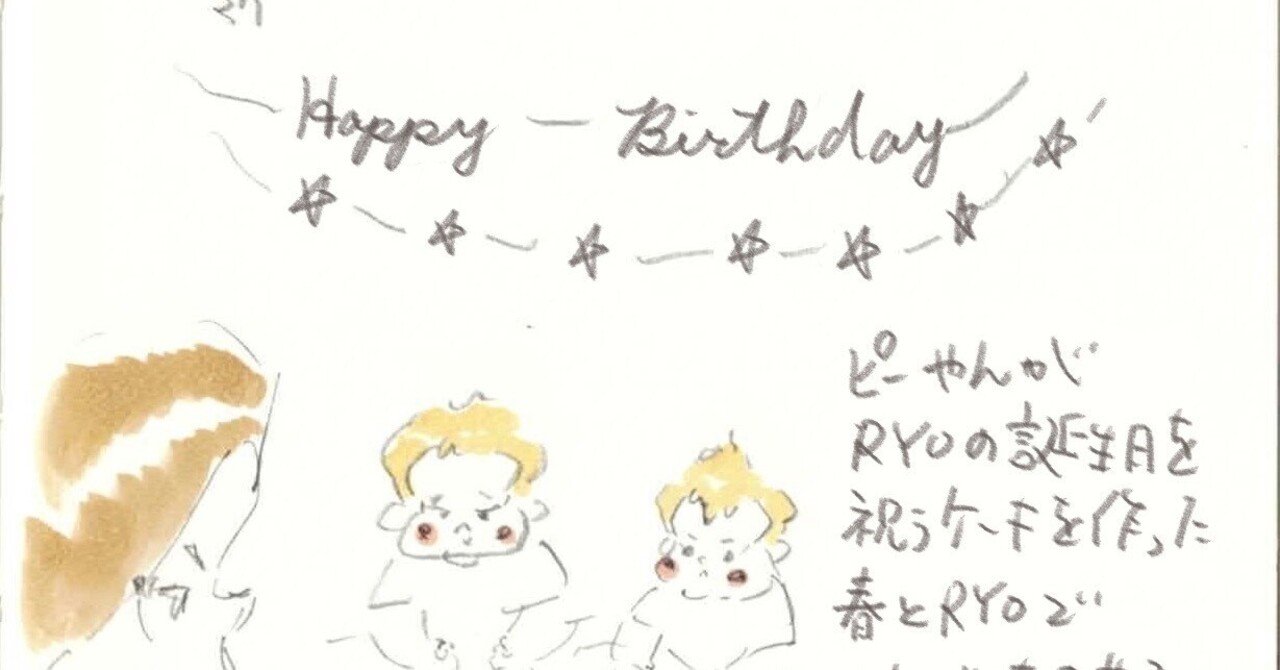 27
Happy Birthday
ピーやんが
RYOの誕生月を
祝うケーキを作った
春とRYOで